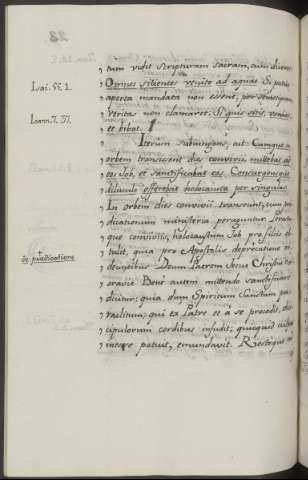 Isai. 55. 1.
Ioann. 7. 37.
de prædicatione
tum vidit scripturam sacram, cum diceret:
Omnes sitientes venite ad aquas. Si potus
aperta mandata non essent, per semetipsam
veritas non clamaret: Si quis sitit, veniat,
et bibat.
Iterum subiungens, ait: Cumque in
orbem transissent dies convivii, mittebat ad
eos Job, et sanctificabat eos. Consurgensque
diluculo offerebat holocausta per singulos.
In orbem dies convivii transeunt, cum
dicationum ministeria peraguntur.
que conviviis, holocaustum Job pro filiis
tulit, quia pro Apostolis de prædicatione
deuntibus Deum Patrem Jesus Christus
oravit. Bene autem mittendo sanctificare
dicitur; quia dum Spiritum Sanctum
raclitum, qui ex Patre et a se procedit, dis-
cipulorum cordibus infudit; quicquid culpæ
inesse potuit, emundavit. Recteque